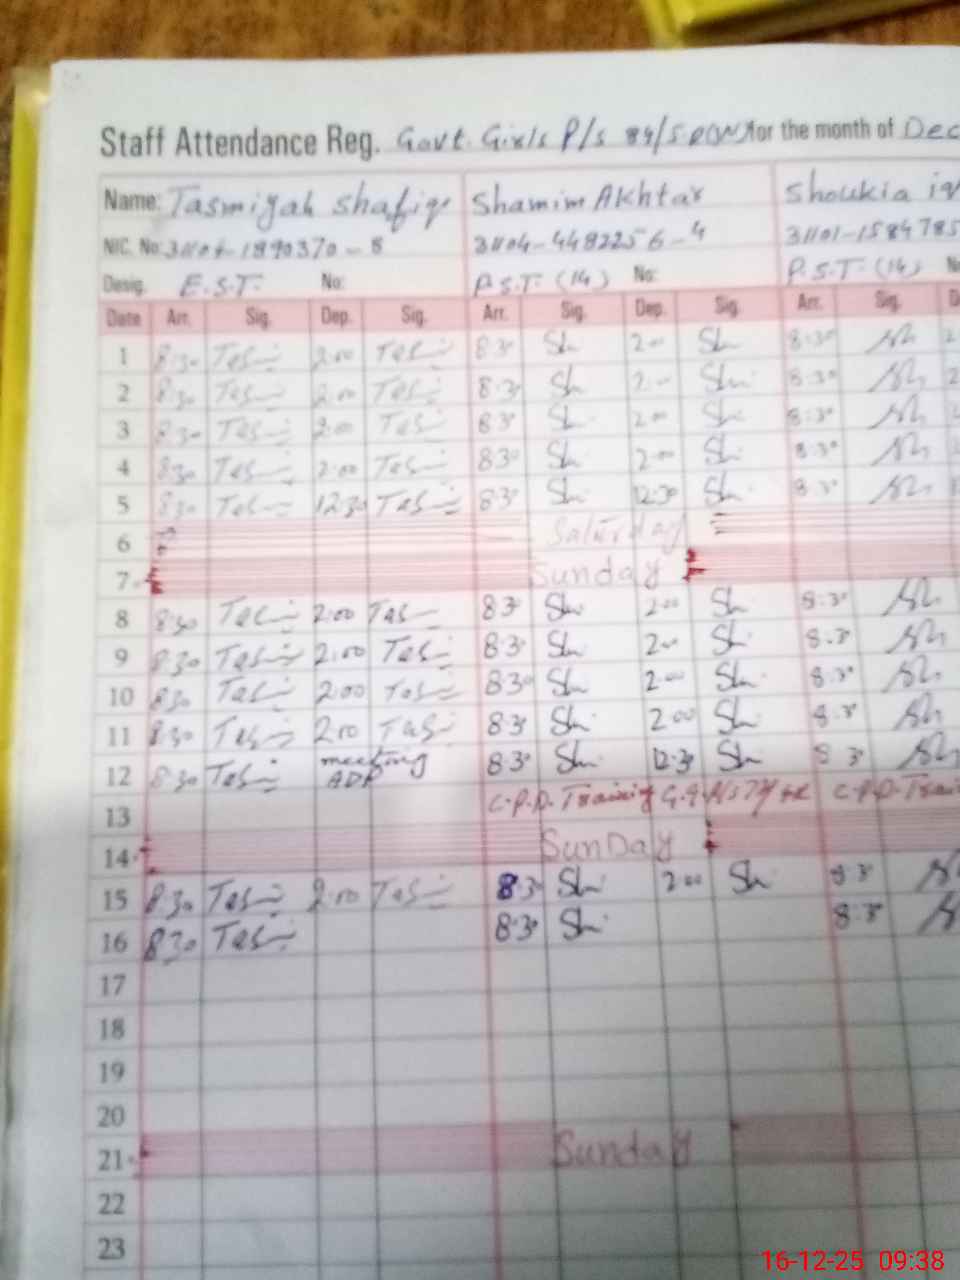 Staff Attendance Reg. Govt. Girls P/S 84/5.R for the month of Dec
Name: Tasmiyah Shafiq Shamim Akhtar Shoukia
NIC. No: 31104-1890370-8 31104-4482256-4 31101-1584785
Desig. E.S.T. No: P.S.T. (14) No: P.S.T. (14)
Date Arr. Sig. Dep. Sig. Arr. Sig. Dep. Sig. Arr. Sig.
1 8:30 Tas 2:00 Tas 8:30 Sh 2:00 Sh 8:30
2 8:30 Tas 2:00 Tas 8:30 Sh 2:00 Sh 8:30
3 8:30 Tas 2:00 Tas 8:30 Sh 2:00 Sh 8:30
4 8:30 Tas 2:00 Tas 8:30 Sh 2:00 Sh 8:30
5 8:30 Tas 12:30 Tas 8:30 Sh 12:30 Sh 8:30
6 Saturday
7 Sunday
8 8:30 Tas 2:00 Tas 8:30 Sh 2:00 Sh 8:30
9 8:30 Tas 2:00 Tas 8:30 Sh 2:00 Sh 8:30
10 8:30 Tas 2:00 Tas 8:30 Sh 2:00 Sh 8:30
11 8:30 Tas 2:00 Tas 8:30 Sh 2:00 Sh 8:30
12 8:30 Tas meeting ADP 8:30 Sh 12:30 Sh 8:30
13 C.P.D. Training C.P.D.
14 SunDay
15 8:30 Tas 2:00 Tas 8:30 Sh 2:00 Sh 8:30
16 8:30 Tas 8:30 Sh 8:30
17
18
19
20
21 Sunday
22
23
16-12-25 09:38